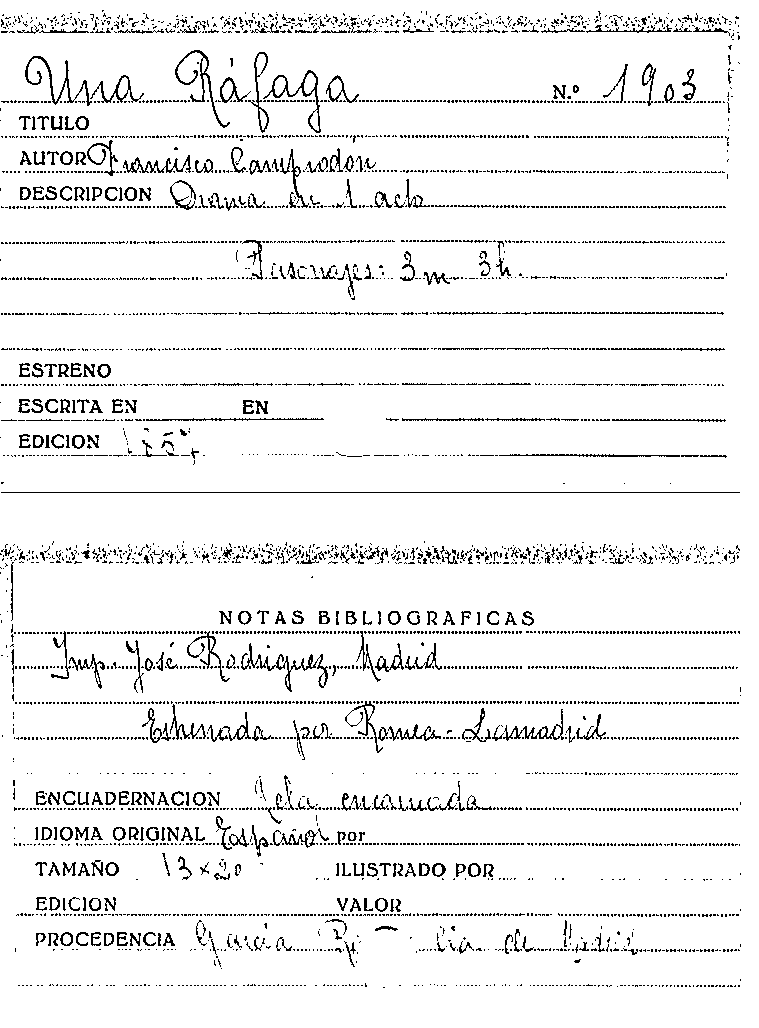 Una Ráfaga N.º 1903
TITULO
AUTOR Francisco Camprodón
DESCRIPCION Drama de 1 acto
Personajes: 3m 3h.
ESTRENO
ESCRITA EN EN
EDICION 1857
NOTAS BIBLIOGRAFICAS
Imp. José Rodriguez, Madrid
Estrenada por Romea-Lamadrid
ENCUADERNACION Tela encarnada
IDIOMA ORIGINAL Español por
TAMAÑO 13x20 ILUSTRADO POR
EDICION VALOR
PROCEDENCIA García de Madrid